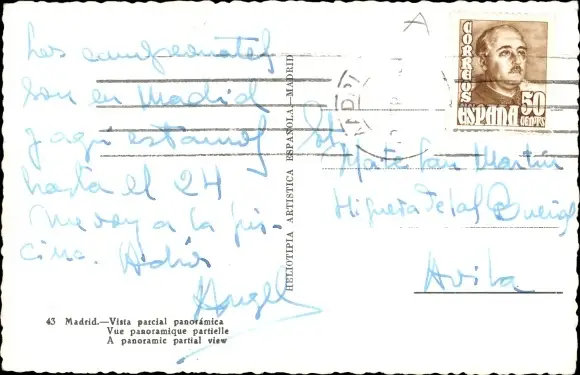 Los campeonatos
son en Madrid
y aqui estamos
hasta el 24
me voy a la pis-
cina. Adios
Angel
43 Madrid.—Vista parcial panorámica
Vue panoramique partielle
A panoramic partial view
HELIOTIPIA ARTISTICA ESPAÑOLA.—MADRID
CORREOS
ESPAÑA
50
CENTMS
Mate San Martín
Higuera de las Dueñas
Avila